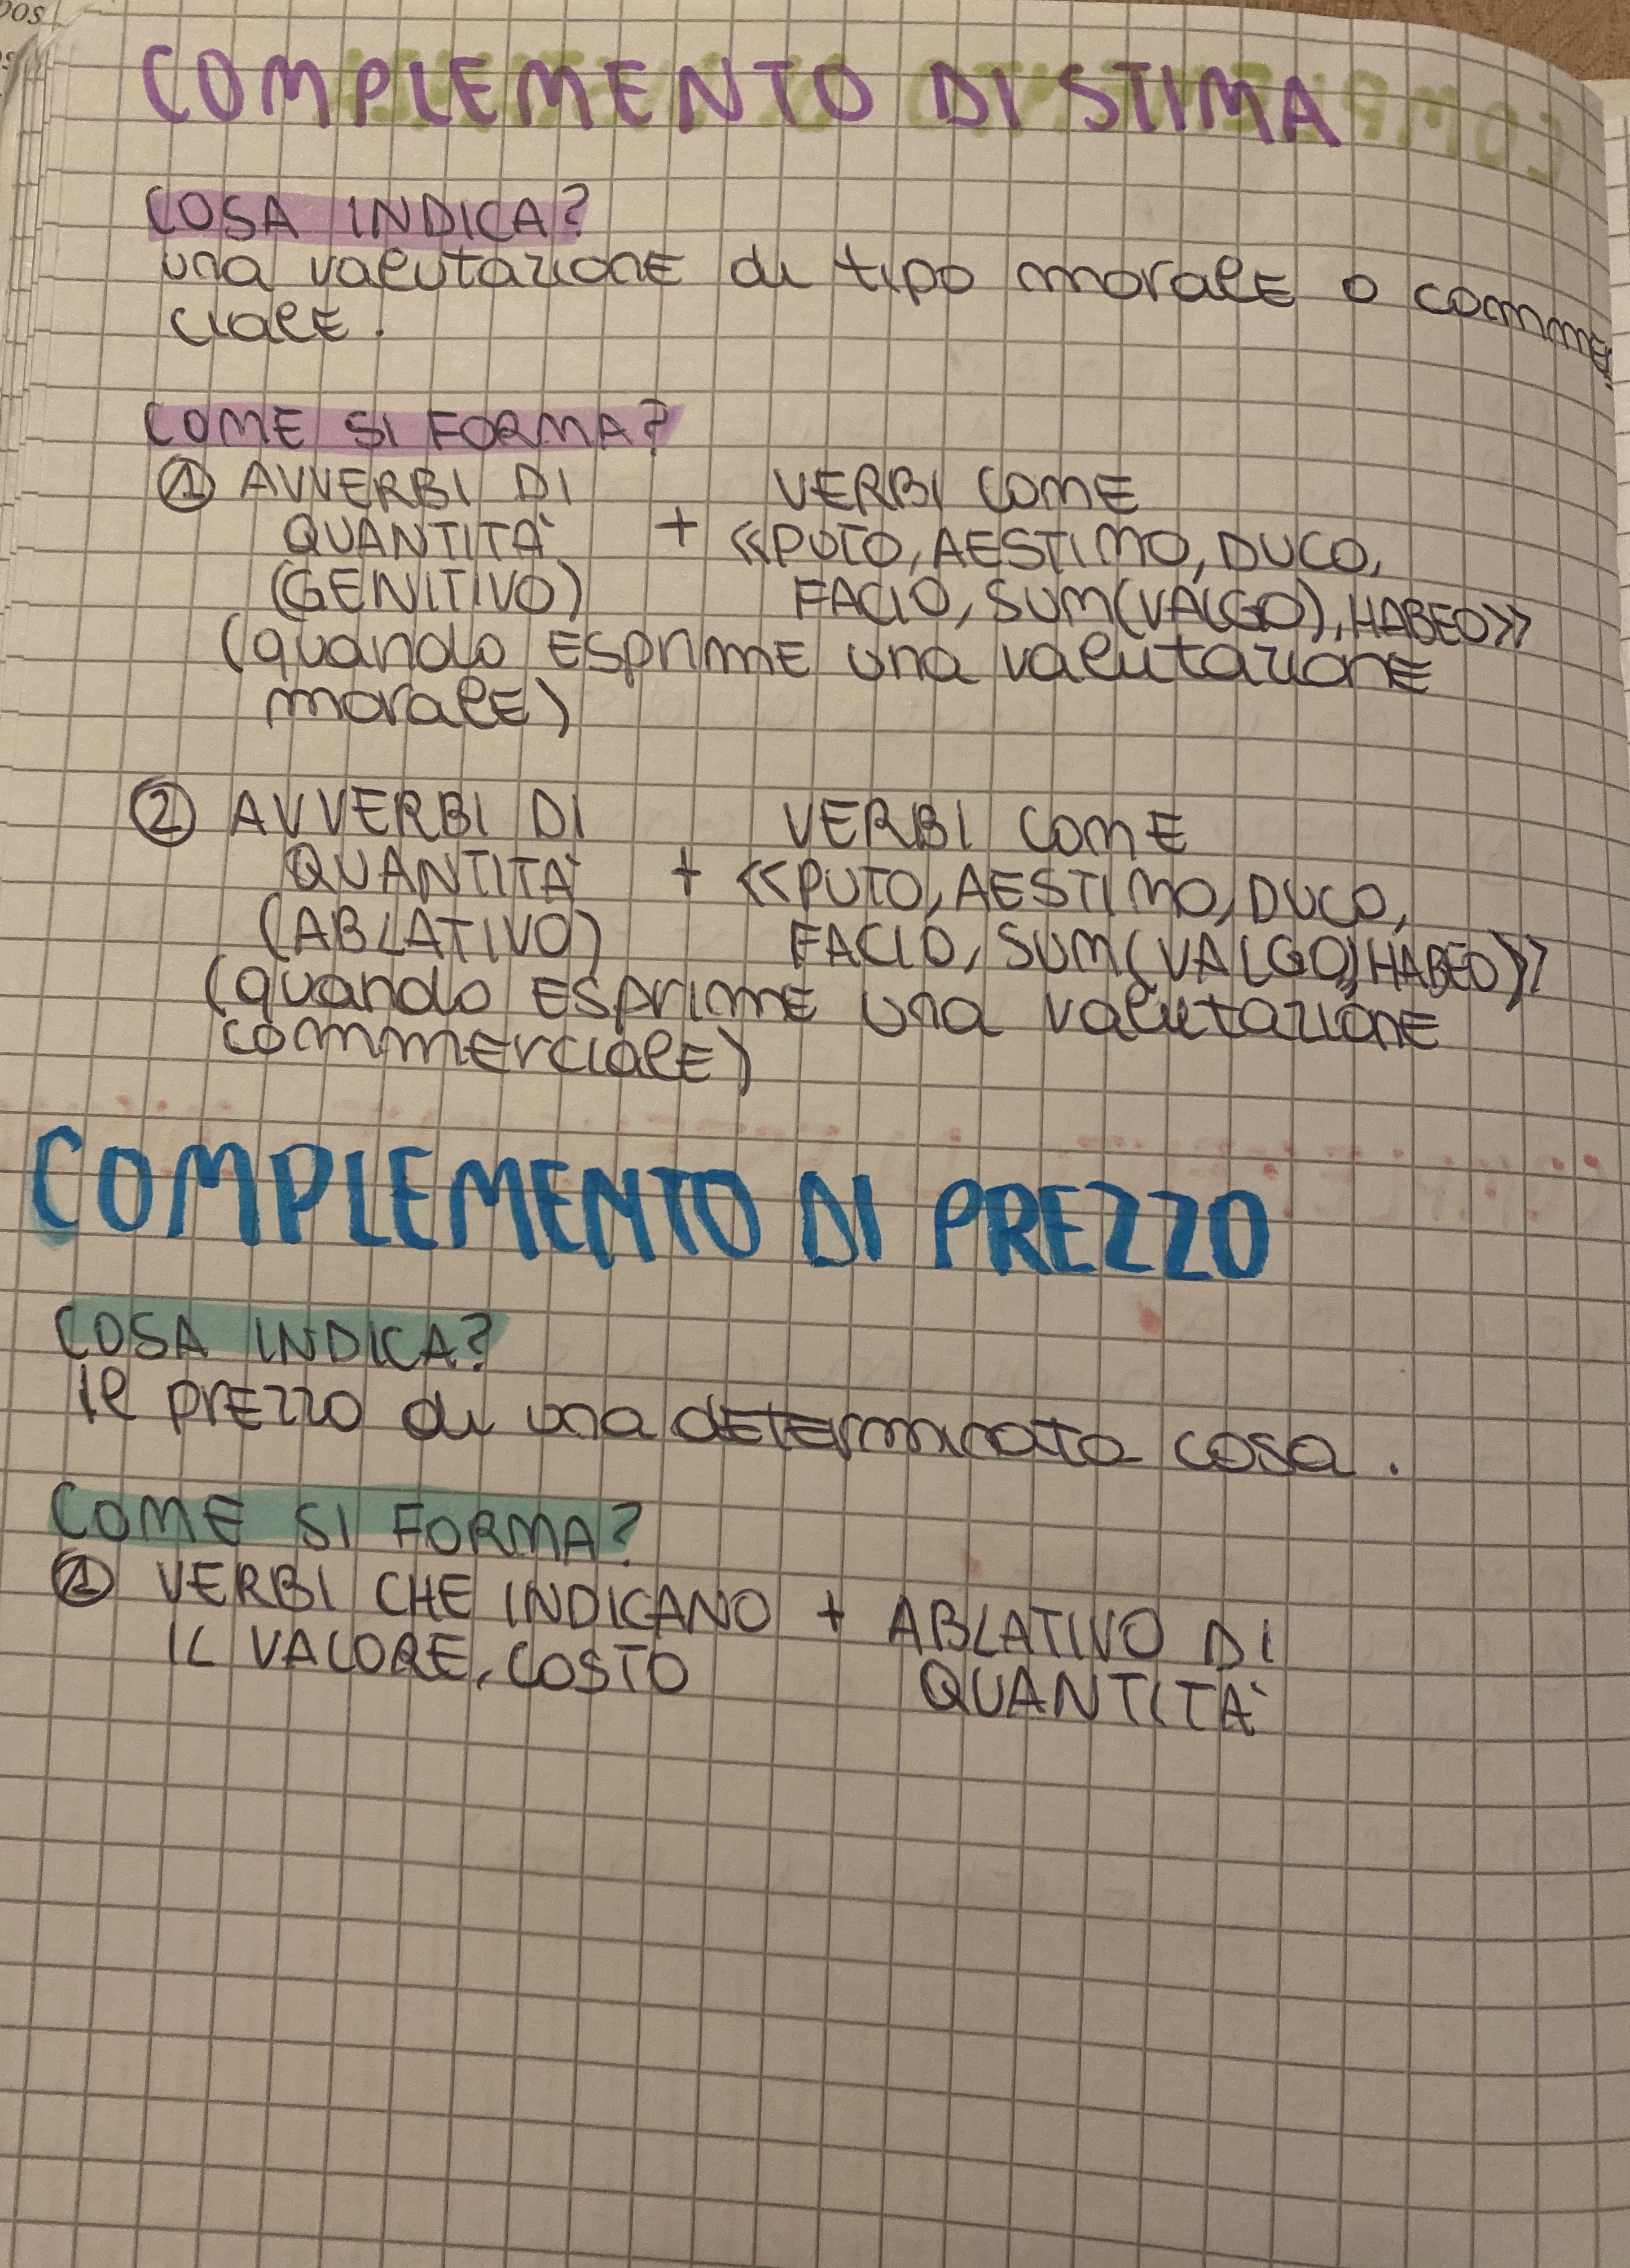 DOS
COMPLEMENTO DI STIMA
COSA INDICA?
una valutazione di tipo morale o commer
ciale.
COME SI FORMA?
① AVVERBI DI VERBI COME
QUANTITÀ + «PUTO, AESTIMO, DUCO,
(GENITIVO) FACIO, SUM(VALGO), HABEO»
(quando esprime una valutazione
morale)
② AVVERBI DI VERBI COME
QUANTITÀ + «PUTO, AESTIMO, DUCO,
(ABLATIVO) FACIO, SUM(VALGO), HABEO»
(quando esprime una valutazione
commerciale)
COMPLEMENTO DI PREZZO
COSA INDICA?
Il prezzo di una determinata cosa.
COME SI FORMA?
① VERBI CHE INDICANO + ABLATIVO DI
IL VALORE, COSTO QUANTITÀ